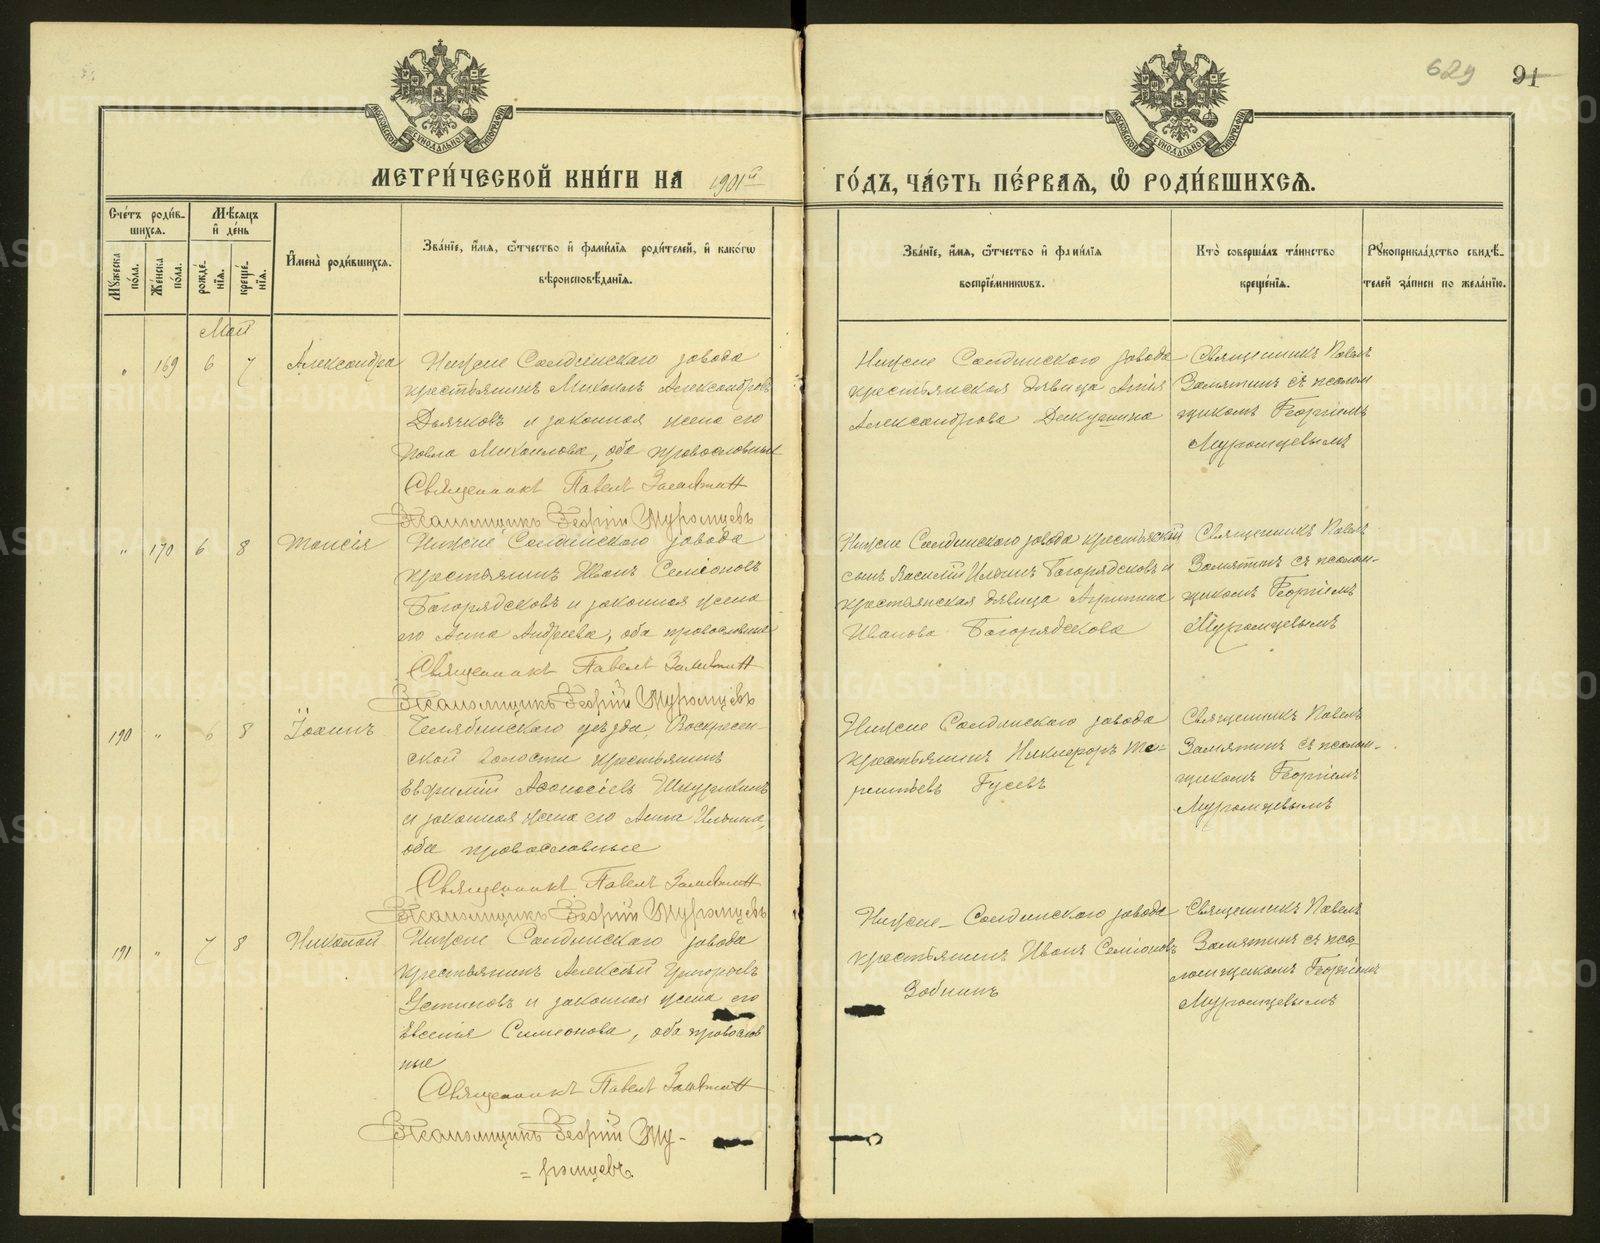 629
91
МЕТРИ́ЧЕСКОЙ КНИ́ГИ НА 1901й ГО́ДЪ, ЧА́СТЬ ПЕ́РВАЯ, Ѽ РОДИ́ВШИХСЯ.
Сче́тъ роди́в-
шихся.
Мѣ́сяцъ
и де́нь
Му́жеска по́ла.
Же́нска по́ла.
рожде́нїя.
креще́нїя.
Имена̀ роди́вшихся.
Зва́нїе, и́мя, ѻ҆́тчество и фами́лїя роди́телей, и како́гѡ
вѣроисповѣ́данїя.
Зва́нїе, и́мя, ѻ҆́тчество и фами́лїя
воспрїе́мниковъ.
Кто̀ соверша́лъ та́инство
креще́нїя.
Рꙋкоприкла́дство свидѣ́-
телей за́писи по жела́нїю.
Май
" 169 6 7 Александра
Нижне Салдинскаго завода
крестьянинъ Михаилъ Александровъ
Дьячковъ и законная жена его
Павла Михаилова, оба православные
Священникъ Павелъ Замятин
Псаломщикъ Георгій Муромцевъ
Нижне Салдинскаго завода
крестьянская дѣвица
Александрова
Священникъ Павелъ
Замятинъ съ псалом
щикомъ Георгіемъ
Муромцевымъ
" 170 6 8 Таисія
Нижне Салдинскаго завода
крестьянинъ Иванъ Семіоновъ
Багорядсковъ и законная жена
его Анна Андреева, оба православные
Священникъ Павелъ Замятин
Псаломщикъ Георгій Муромцевъ
Нижне Салдинскаго завода крестьянскій
сынъ Василій Ильинъ Багорядсковъ и
крестьянская дѣвица Агрипина
Иванова Багорядскова
Священникъ Павелъ
Замятинъ съ псалом-
щикомъ Георгіемъ
Муромцевымъ
190 " 6 8 Іоаннъ
Челябинскаго уѣзда, Воскресен-
ской волости крестьянинъ
Евфимій Аѳонасіевъ
и законная жена его Анна Ильина,
оба православные
Священникъ Павелъ Замятин
Псаломщикъ Георгій Муромцевъ
Нижне Салдинскаго завода
крестьянинъ Никифоръ Те-
рентьевъ Гусевъ
Священникъ Павелъ
Замятинъ съ псалом-
щикомъ Георгіемъ
Муромцевымъ
191 " 7 8 Николай
Нижне Салдинскаго завода
крестьянинъ Алексѣй Григорьевъ
Устиновъ и законная жена его
Евгенія Симеонова, оба православ
ные
Священникъ Павелъ Замятин
Псаломщикъ Георгій Му-
=ромцевъ
Нижне-Салдинскаго завода
крестьянинъ Иванъ Семіоновъ
Зобнинъ
Священникъ Павелъ
Замятинъ съ пса-
ломщикомъ Георгіемъ
Муромцевымъ
METRIKI.GASO-URAL.RU